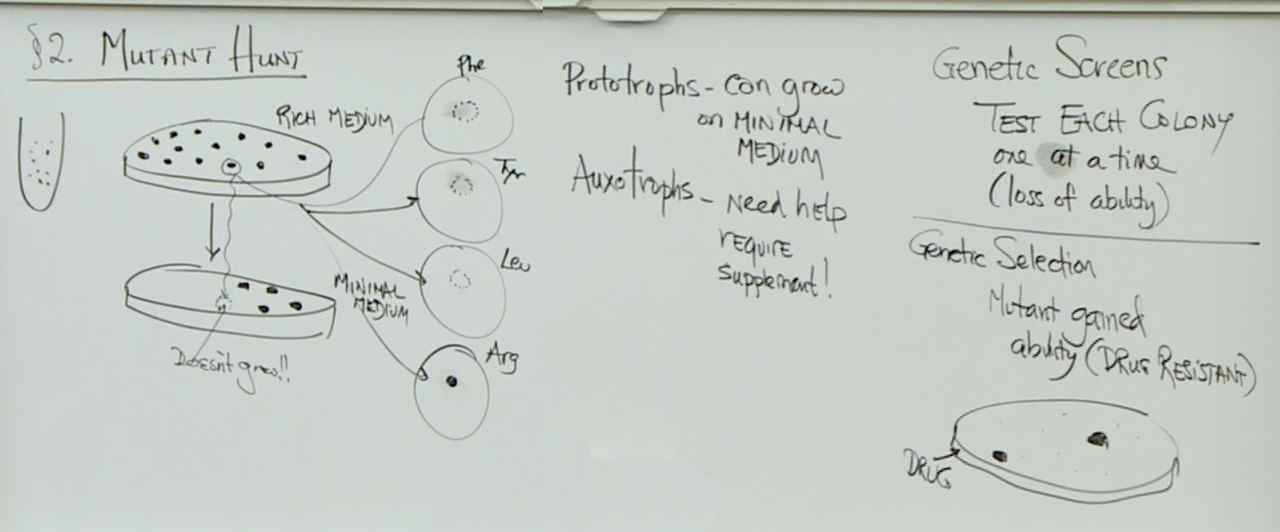 §2. MUTANT HUNT
RICH MEDIUM
Phe
Tyr
Leu
MINIMAL
MEDIUM
Arg
Doesn't grow!!
Prototrophs - can grow
on MINIMAL
MEDIUM
Auxotrophs - Need help
REQUIRE
supplement!
Genetic Screens
TEST EACH COLONY
one at a time
(loss of ability)
Genetic Selection
Mutant gained
ability (DRUG RESISTANT)
DRUG